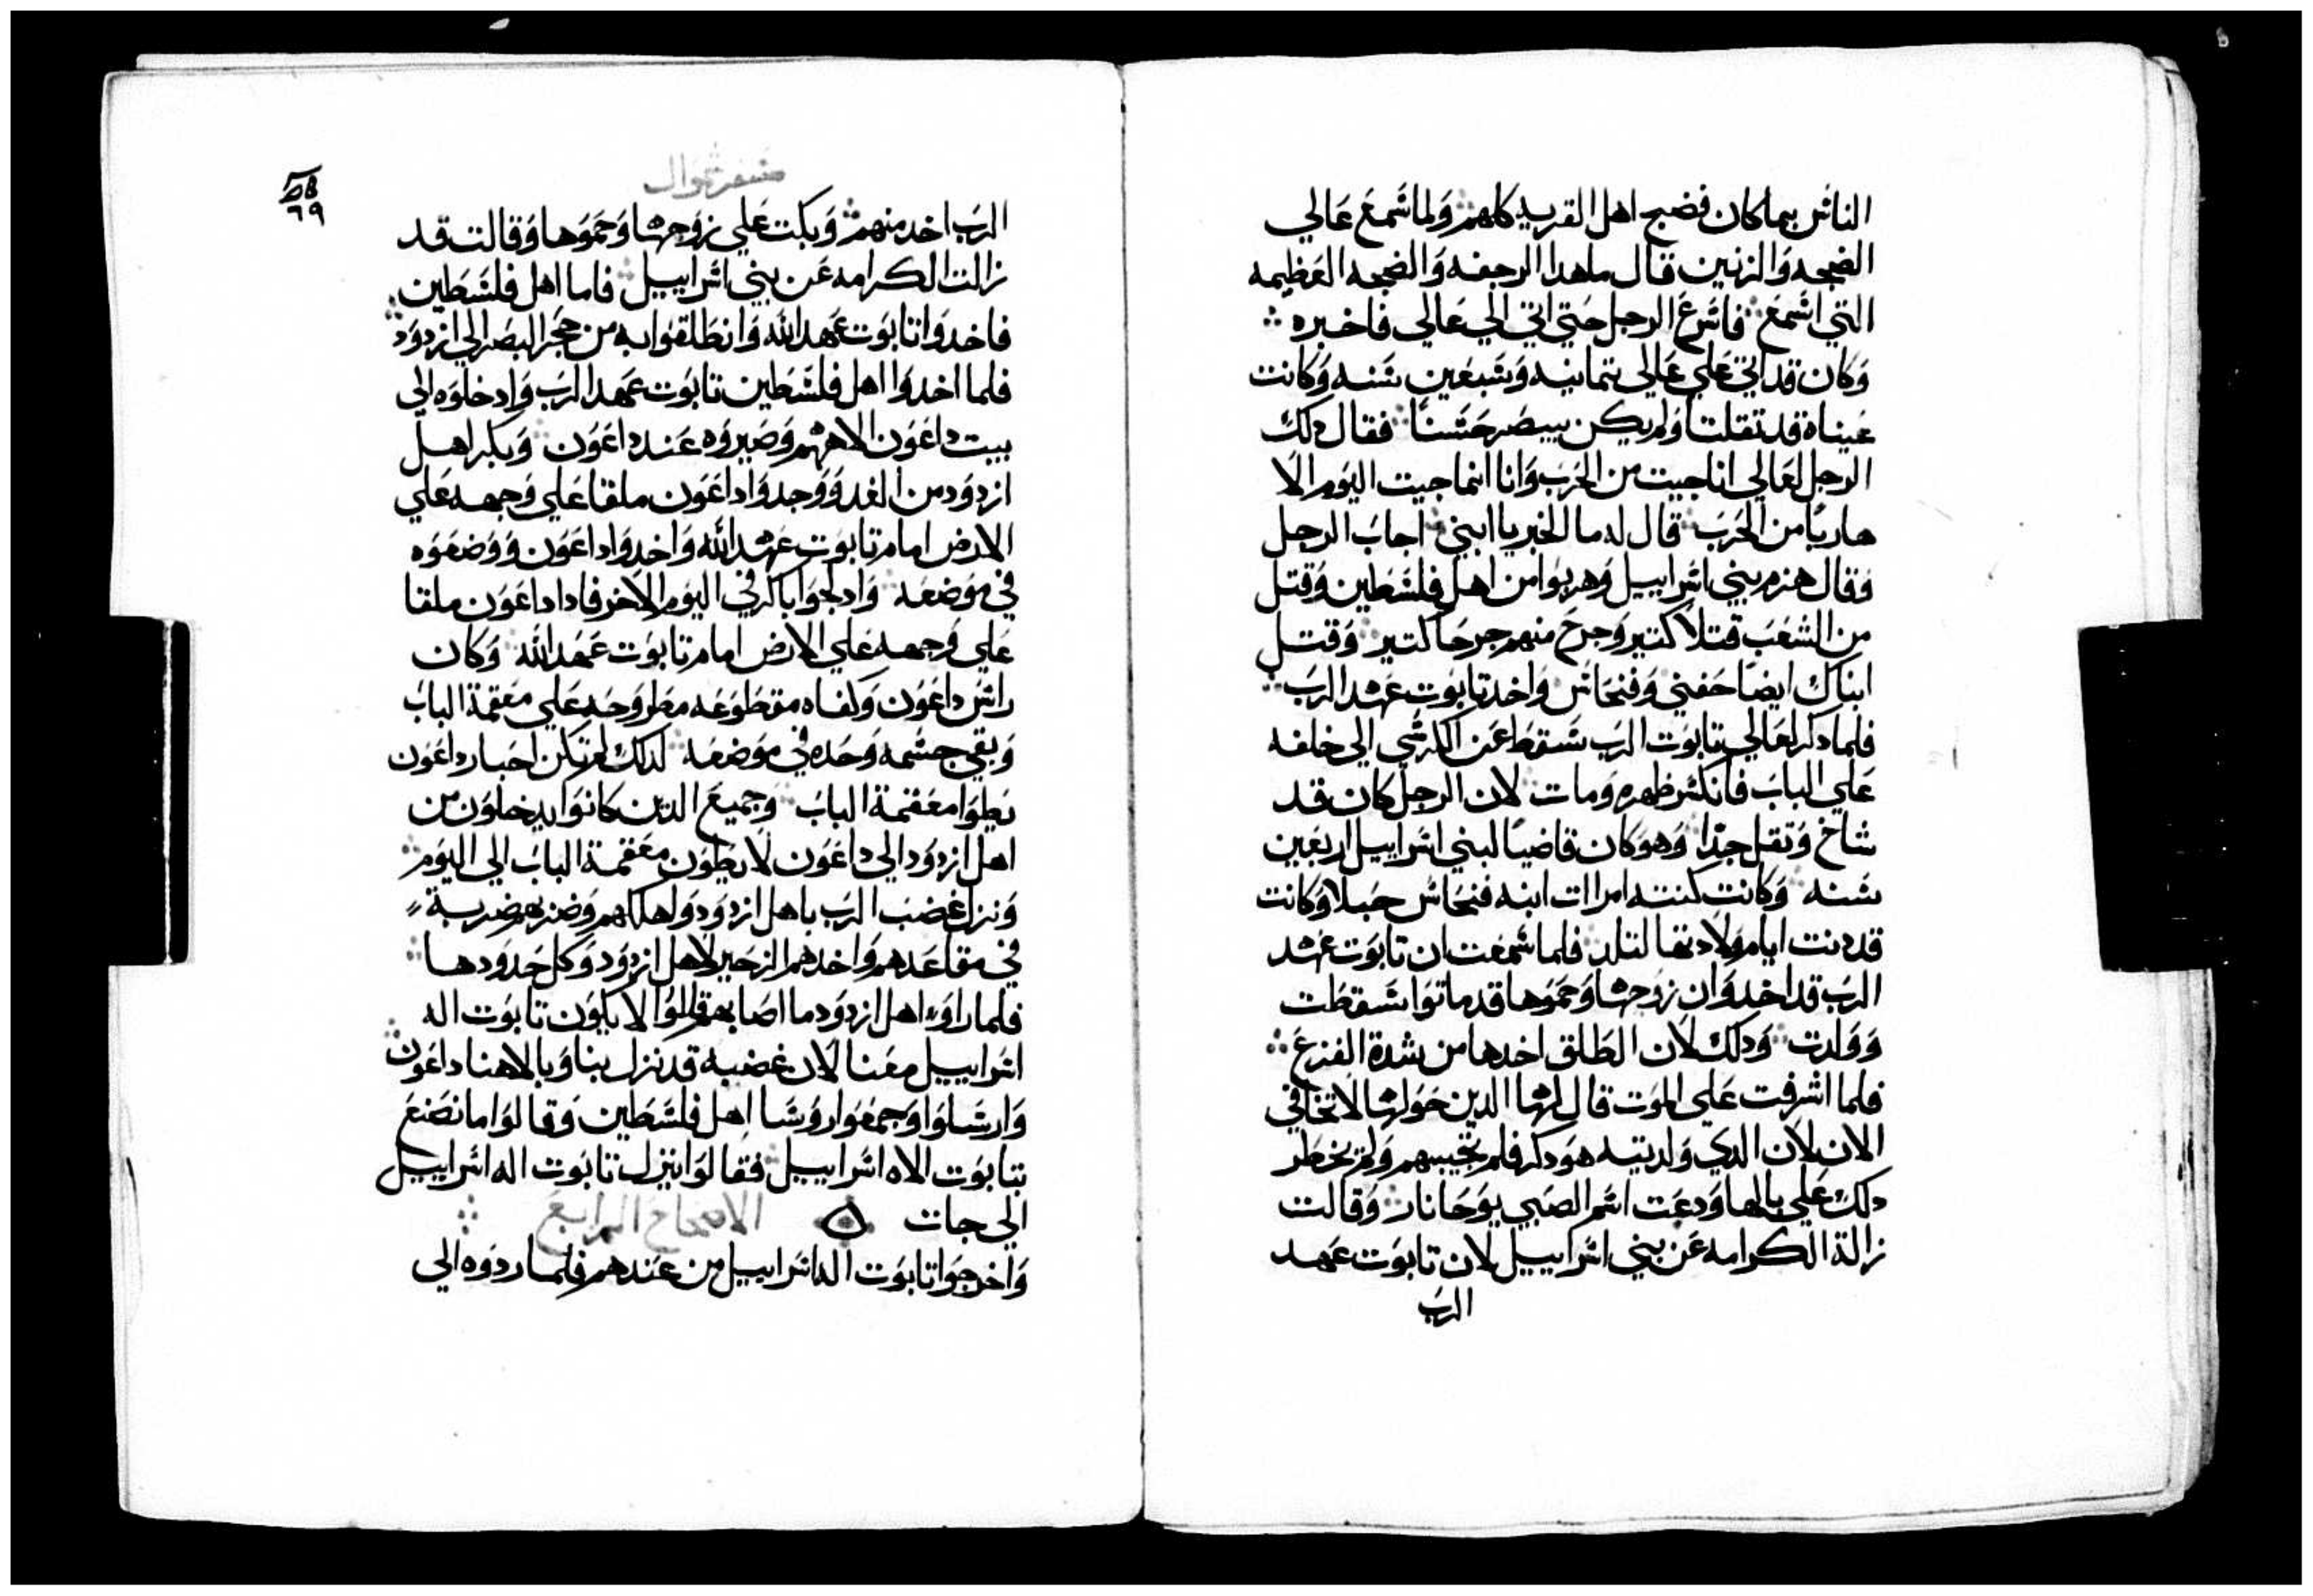 الناس بما كان فضج اهل القريه كلهم ولما سمع عالي
الضجه والزنين قال ما هدا الرجفه والضجه العظيمه
التي اسمع فاسرع الرجل حتي اتي الي عالي فاخبره
وكان قد اتي علي عالي تمانيه وسبعين سنه وكانت
عيناه قد تقلتا ولم يكن يبصر حسنا فقال دلك
الرجل لعالي انا جيت من الحرب وانا انما جيت اليوم الا
هاربا من الحرب قال له ما الخبر يا ابني اجاب الرجل
وقال هزم بني اسراييل وهربوا من اهل فلسطين وقتل
من الشعب قتلا كتير وجرح منهم جرحا كتير وقتل
ابناك ايضا حفني وفنحاس واخد تابوت عهد الرب
فلما دكر لعالي تابوت الرب سقط عن الكرسي الي خلفه
علي الباب فانكسر ظهره ومات لان الرجل كان قد
شاخ وتقل جدا وهو كان قاضيا لبني اسراييل اربعين
سنه وكانت كنته امرات ابنه فنحاس حبلا وكانت
قد دنت ايام ولادتها لتلد فلما سمعت ان تابوت عهد
الرب قد اخد وان زوجها وحموها قد ماتوا سقطت
وولدت ودلك لان الطلق اخدها من شدة الفزع
فلما اشرفت علي الموت قال لها الدين حولها لا تخافي
الان لان الدي ولدتيه هو دكر فلم تجيبهم ولم يخطر
دلك علي بالها ودعت اسم الصبي يوحانار وقالت
زالة الكرامه عن بني اسراييل لان تابوت عهد
الرب
سفر شموال
٦٩
الرب اخد منهم وبكت علي زوجها وحموها وقالت قد
زالت الكرامه عن بني اسراييل فاما اهل فلسطين
فاخدوا تابوت عهد الله وانطلقوا به من حجر البصر الي ازدود
فلما اخدوا اهل فلسطين تابوت عهد الرب وادخلوه الي
بيت داغون الاههم وصيروه عند داغون وبكر اهل
ازدود من الغد ووجدوا داغون ملقا علي وجهه علي
الارض امام تابوت عهد الله واخدوا داغون ووضعوه
في موضعه وادلجوا باكر في اليوم الاخر فادا داغون ملقا
علي وجهه علي الارض امام تابوت عهد الله وكان
راس داغون وكفاه مقطوعه مطروحه علي معقمة الباب
وبقي جسمه وحده في موضعه لدلك لم تكن احبار داغون
يطوا معقمة الباب وجميع الدين كانوا يدخلون من
اهل ازدود الي داغون لا يطون معقمة الباب الي اليوم
ونزل غضب الرب باهل ازدود واهلكهم وضربهم ضربة
في مقاعدهم واخدهم الزحير لاهل ازدود وكل حدودها
فلما راوا اهل ازدود ما اصابهم قالوا لا يكون تابوت اله
اسراييل معنا لان غضبه قد نزل بنا وبالاهنا داغون
وارسلوا وجمعوا روسا اهل فلسطين وقالوا ما نصنع
بتابوت الاه اسراييل فقالوا ينزل تابوت اله اسراييل
الي جات الاصحاح الرابع
واخرجوا تابوت اله اسراييل من عندهم فلما ردوه الي